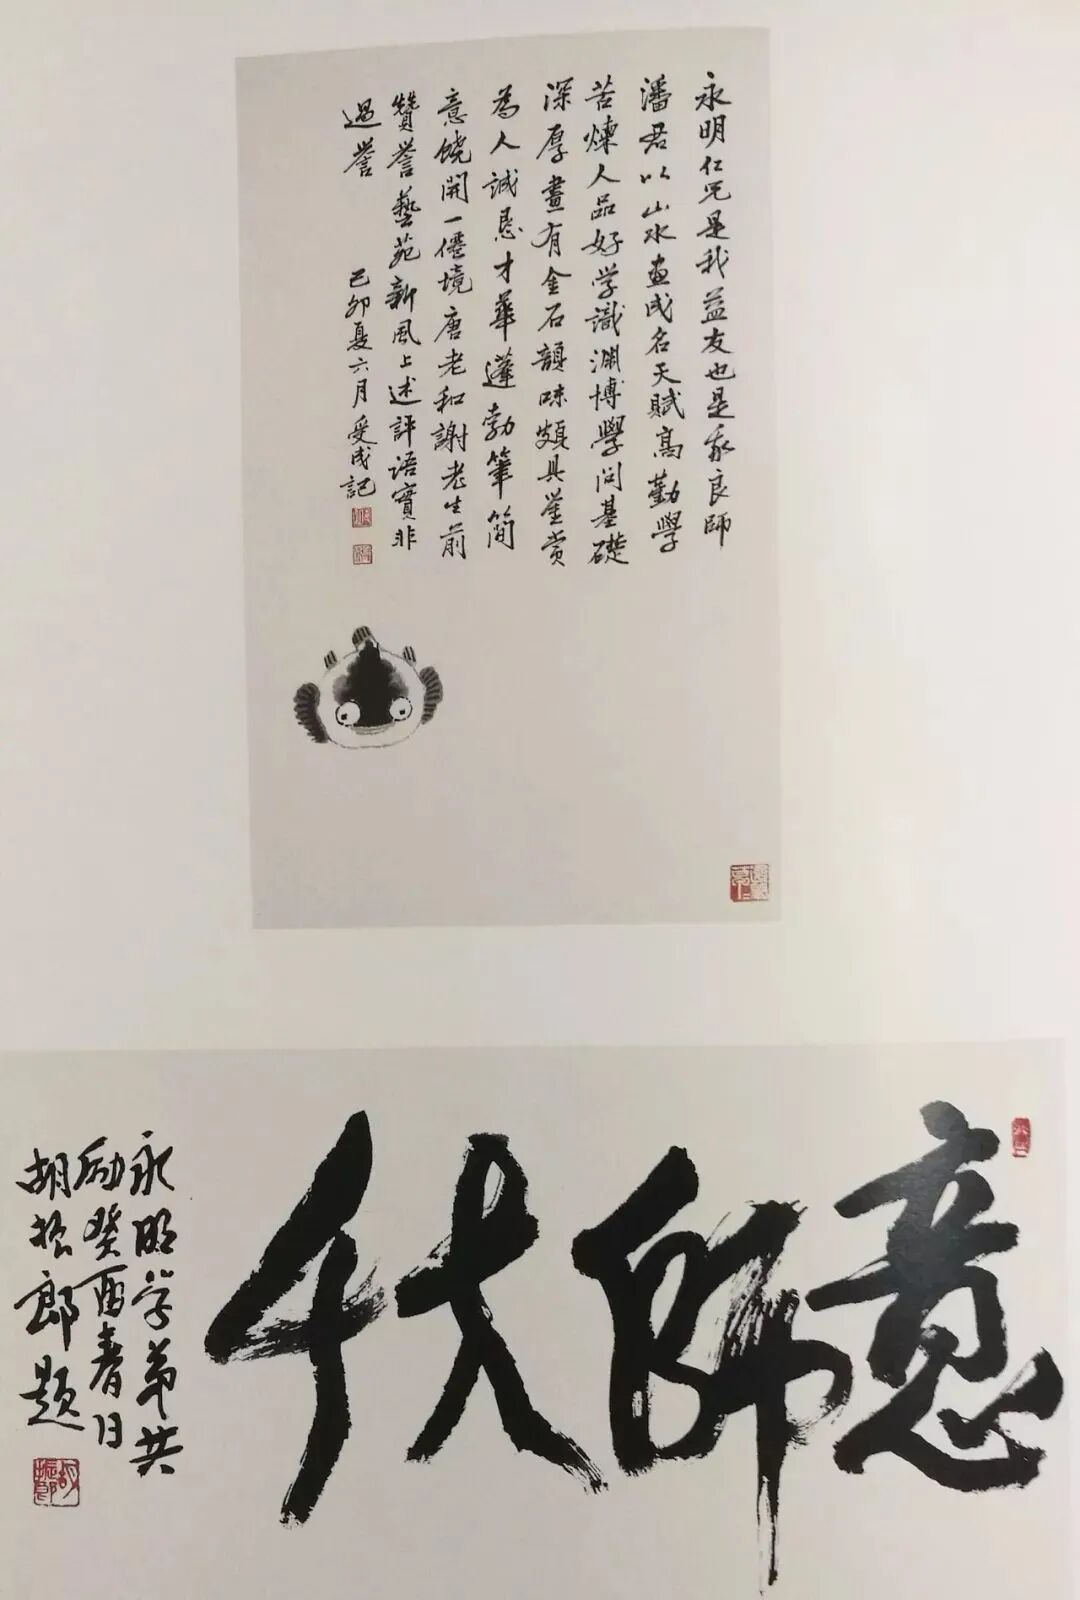 永明仁兄是我益友也是我良師
潘君以山水画成名天賦高勤學
苦煉人品好学識淵博學问基礎
深厚畫有金石韻味頗具鉴赏
為人誠恳才華蓬勃筆简
意饒開一僊境唐老和謝老生前
贊誉藝苑新風上述評语實非
過誉
己卯夏六月受成記
意師大千
永明学弟共
励癸酉春日
胡振郎题